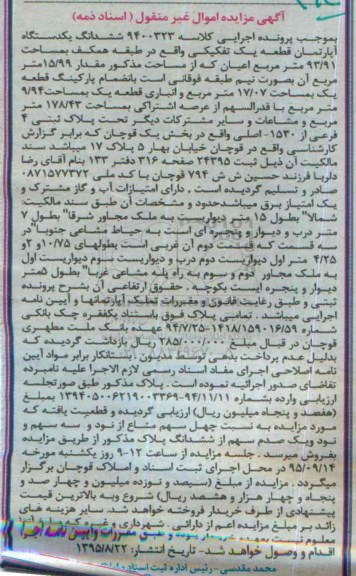 آگهی مزایده اموال غیر منقول ( اسناد ذمه)
بموجب پرونده اجرایی کلاسه ۹۴۰۰۳۲۲ ششدانگ یکدستگاه
آپارتمان قطعه یک تفکیکی واقع در طبقه همکف بمساحت
۹۳/۹۱ متر مربع اعیان که از مساحت مذکور مقدار ۱۵/۹۹متر
مربع آن بصورت نیم طبقه فوقانی است بانضمام پارکینگ قطعه
یک بمساحت ۱۷/۰۷ متر مربع و انباری قطعه یک بمساحت۹/۹۴
متر مربع با قدرالسهم از عرصه اشتراکی بمساحت ۱۷۸/۴۳ متر
مربع و مشاعات و سایر مشترکات دیگر تحت پلاک ثبتی ۴
فرعی از ۱۵۳۰- اصلی واقع در بخش یک قوچان که برابر گزارش
کارشناسی واقع در قوچان خیابان بهار ۵ پلاک ۱۷ میباشد سند
مالکیت آن ذیل ثبت ۲۴۳۹۵ صفحه ۳۱۶ دفتر ۱۳۳ بنام آقای رضا
دلربا فرزند حسین ش ش ۷۹۴ قوچان با کد ملی ۰۸۷۱۵۷۷۳۷۲
صادر و تسلیم گردیده است . دارای امتیازات آب و گاز مشترک و
یک امتیاز برق میباشدحدود و مشخصات آن طبق سند مالکیت
شمالا" بطول ۱۵ متر دیواریست به ملک مجاور شرقا" بطول ۷
متر درب و دیوار و پنجره ای است به حیاط مشاعی جنوبا"در
سه قسمت که قسمت دوم آن غربی است بطولهای ۱۰/۷۵و ۲و
۴/۲۵ متر اول دیواریست دوم درب و دیواریست سوم دیواریست اول
به ملک مجاور دوم و سوم به راه پله مشاعی غربا" بطول ۵متر
دیوار و پنجره ایست بکوچه . حقوق ارتفاقی آن بشرح پرونده
ثبتی و طبق رعایت قانون و مقررات تملک آپارتمانها و آیین نامه
اجرایی میباشد . تمامی پلاک فوق باستناد یکفقره چک بانکی
شماره ۱۴۱۸/۱۵۹۰۱۶/۵۹-۹۴/۷/۲۵ عهده بانک ملت مطهری
قوچان در قبال مبلغ ۲۸۵/۰۰۰/۰۰۰ ریال بازداشت گردیده که
بدلیل عدم پرداخت بدهی توسط مدیون بستانکار برابر مواد آیین
نامه اصلاحی اجرای مفاد اسناد رسمی لازم الاجرا علیه نامبرده
تقاضای صدور اجرائیه نموده است . پلاک مذکور طبق صورتجلسه
ارزیابی وارده بشماره ۱۳۹۴۰۵۰۰۶۲۱۹۰۰۳۳۶۹-۹۴/۱۱/۱۱ بمبلغ
(هفصد و پنجاه میلیون ریال) ارزیابی گردیده و قطعیت یافته که
مورد مزایده به نسبت چهل سهم مشاع از نود و سه سهم و
نود ویک صدم سهم از ششدانگ پلاک مذکور از طریق مزایده
بفروش میرسد . جلسه مزایده از ساعت ۱۲-۹ روز یکشنبه مورخه
۹۵/۰۹/۱۴ در محل اجرای ثبت اسناد و املاک قوچان برگزار
میگردد . مزایده از مبلغ (سیصد و نوزده میلیون و چهار صد و
پنجاه و چهار هزار و هشصد ریال) شروع وبه بالاترین قیمت
پیشنهادی از طرف خریدار فروخته خواهد شد. سایر هزینه های
زائد بر مبلغ مزایده اعم از دارائی . شهرداری و غیره که
معلوم نیست بعهده
اقدام و وصول خواهد شد- تاریخ انتشار: ۱۳۹۵/۸/۲۲
محمد مقدسی - رئیس اداره ثبت اسناد